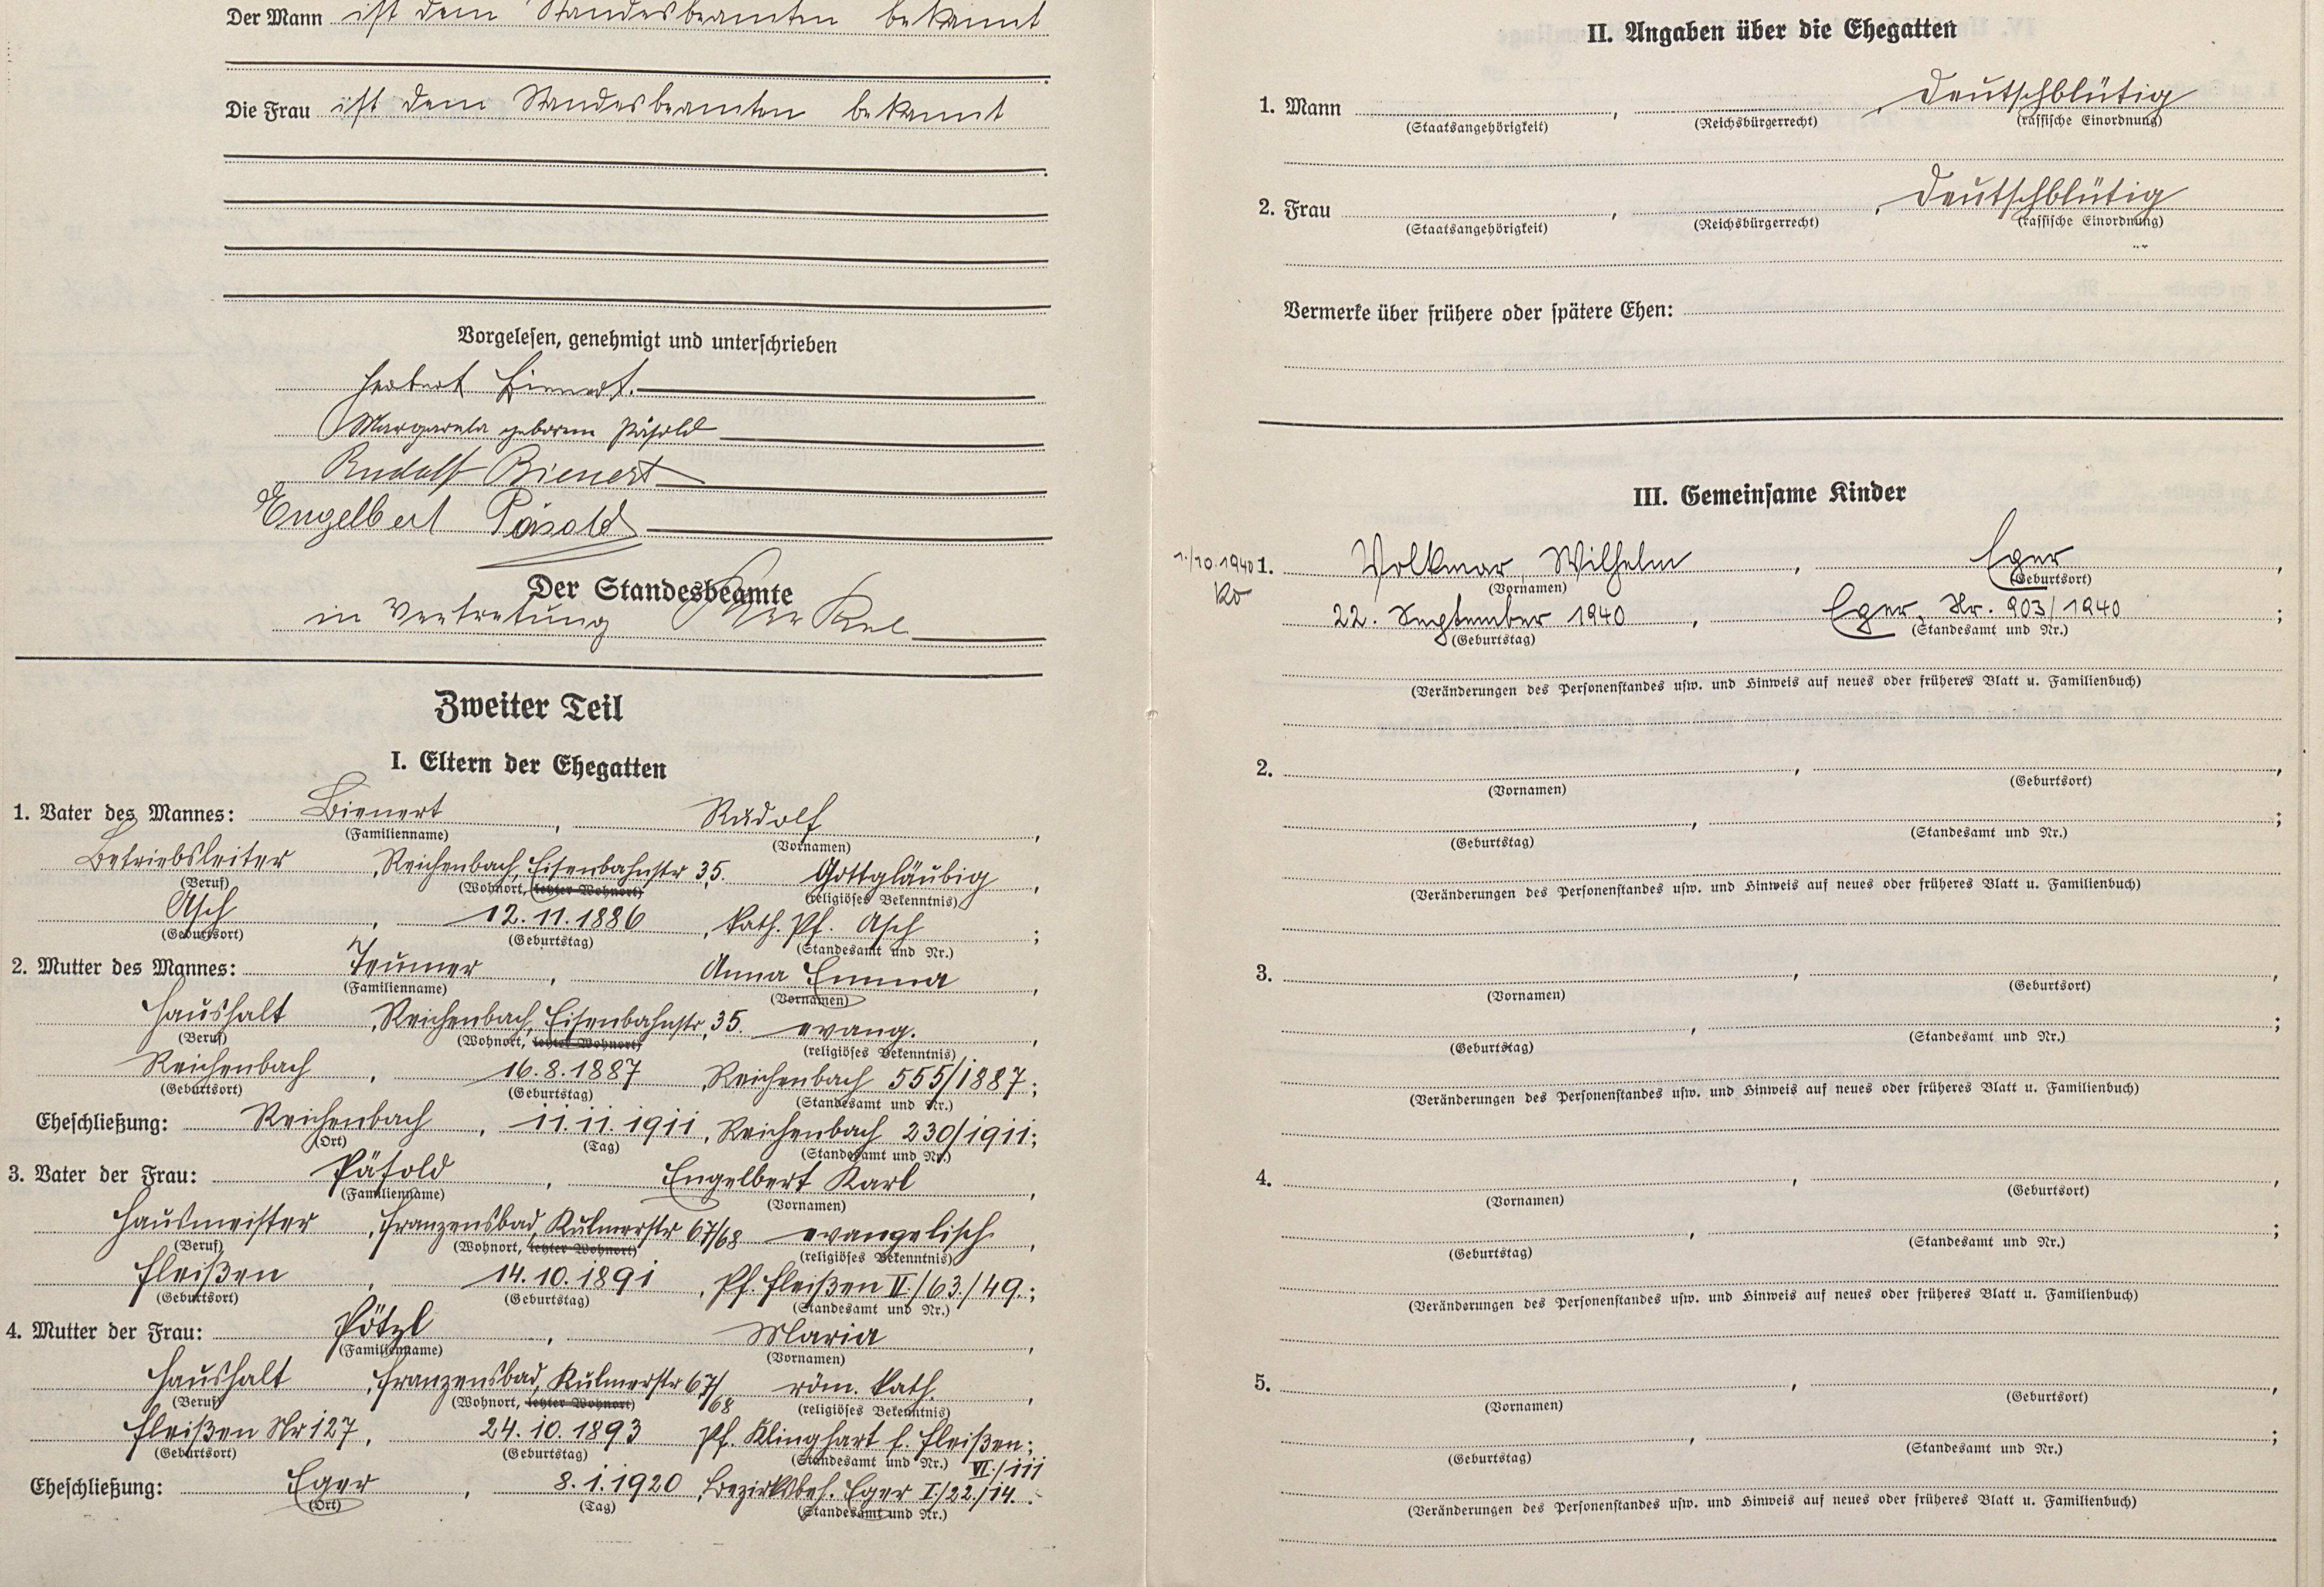 Der Mann ist dem Standesbeamten bekannt
Die Frau ist dem Standesbeamten bekannt
Vorgelesen, genehmigt und unterschrieben
Herbert Bienert.
Margareta geborene Päsold
Rudolf Bienert
Engelbert Päsold
Der Standesbeamte
in Vertretung
Zweiter Teil
I. Eltern der Ehegatten
1. Vater des Mannes: Bienert, Rudolf,
(Familienname) (Vornamen)
Betriebsleiter, Reichenbach, Eisenbahnstr 35. Gottgläubig,
(Beruf) (Wohnort, letzter Wohnort) (religiöses Bekenntnis)
Asch, 12.11.1886, kath. Pf. Asch;
(Geburtsort) (Geburtstag) (Standesamt und Nr.)
2. Mutter des Mannes: Teumer, Anna Emma,
(Familienname) (Vornamen)
Haushalt, Reichenbach, Eisenbahnstr. 35. evang.,
(Beruf) (Wohnort, letzter Wohnort) (religiöses Bekenntnis)
Reichenbach, 16.8.1887, Reichenbach 555/1887;
(Geburtsort) (Geburtstag) (Standesamt und Nr.)
Eheschließung: Reichenbach, 11.11.1911, Reichenbach 230/1911;
(Ort) (Tag) (Standesamt und Nr.)
3. Vater der Frau: Päsold, Engelbert Karl,
(Familienname) (Vornamen)
Hausmeister, Franzensbad, Kulmerstr 67/68 evangelisch,
(Beruf) (Wohnort, letzter Wohnort) (religiöses Bekenntnis)
Fleißen, 14.10.1891, Pf. Fleißen II./63./49.;
(Geburtsort) (Geburtstag) (Standesamt und Nr.)
4. Mutter der Frau: Pötzl, Maria,
(Familienname) (Vornamen)
Haushalt, Franzensbad, Kulmerstr 67/68 röm. kath.,
(Beruf) (Wohnort, letzter Wohnort) (religiöses Bekenntnis)
Fleißen Nr 127, 24.10.1893 Pf. Klinghart f. Fleißen;
(Geburtsort) (Geburtstag) (Standesamt und Nr.) VI./111
Eheschließung: Eger, 8.1.1920, Bezirksbeh. Eger I./22./14.
(Ort) (Tag) (Standesamt und Nr.)
II. Angaben über die Ehegatten
1. Mann , , Deutschblütig
(Staatsangehörigkeit) (Reichsbürgerrecht) (rassische Einordnung)
2. Frau , , Deutschblütig
(Staatsangehörigkeit) (Reichsbürgerrecht) (rassische Einordnung)
Vermerke über frühere oder spätere Ehen:
III. Gemeinsame Kinder
1./10.1940 1. Volkmar, Wilhelm, Eger,
Ko (Vornamen) (Geburtsort)
22. September 1940, Eger, Nr. 903/1940;
(Geburtstag) (Standesamt und Nr.)
(Veränderungen des Personenstandes usw. und Hinweis auf neues oder früheres Blatt u. Familienbuch)
2. , ,
(Vornamen) (Geburtsort)
, ;
(Geburtstag) (Standesamt und Nr.)
(Veränderungen des Personenstandes usw. und Hinweis auf neues oder früheres Blatt u. Familienbuch)
3. , ,
(Vornamen) (Geburtsort)
, ;
(Geburtstag) (Standesamt und Nr.)
(Veränderungen des Personenstandes usw. und Hinweis auf neues oder früheres Blatt u. Familienbuch)
4. , ,
(Vornamen) (Geburtsort)
, ;
(Geburtstag) (Standesamt und Nr.)
(Veränderungen des Personenstandes usw. und Hinweis auf neues oder früheres Blatt u. Familienbuch)
5. , ,
(Vornamen) (Geburtsort)
, ;
(Geburtstag) (Standesamt und Nr.)
(Veränderungen des Personenstandes usw. und Hinweis auf neues oder früheres Blatt u. Familienbuch)